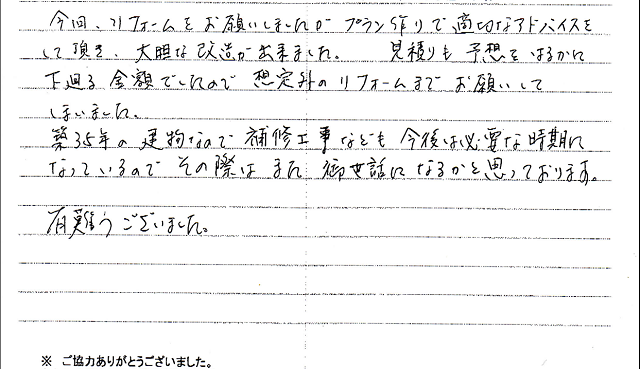 今回、リフォームをお願いしましたが プラン作りで適切なアドバイスを
して頂き、大胆な改造が出来ました。 見積りも予想をはるかに
下廻る金額でしたので 想定外のリフォームまでお願いして
しまいました。
築35年の建物なので 補修工事なども今後は必要な時期に
なっているので その際は また 御世話になるかと思っております。
有難うございました。
※ ご協力ありがとうございました。